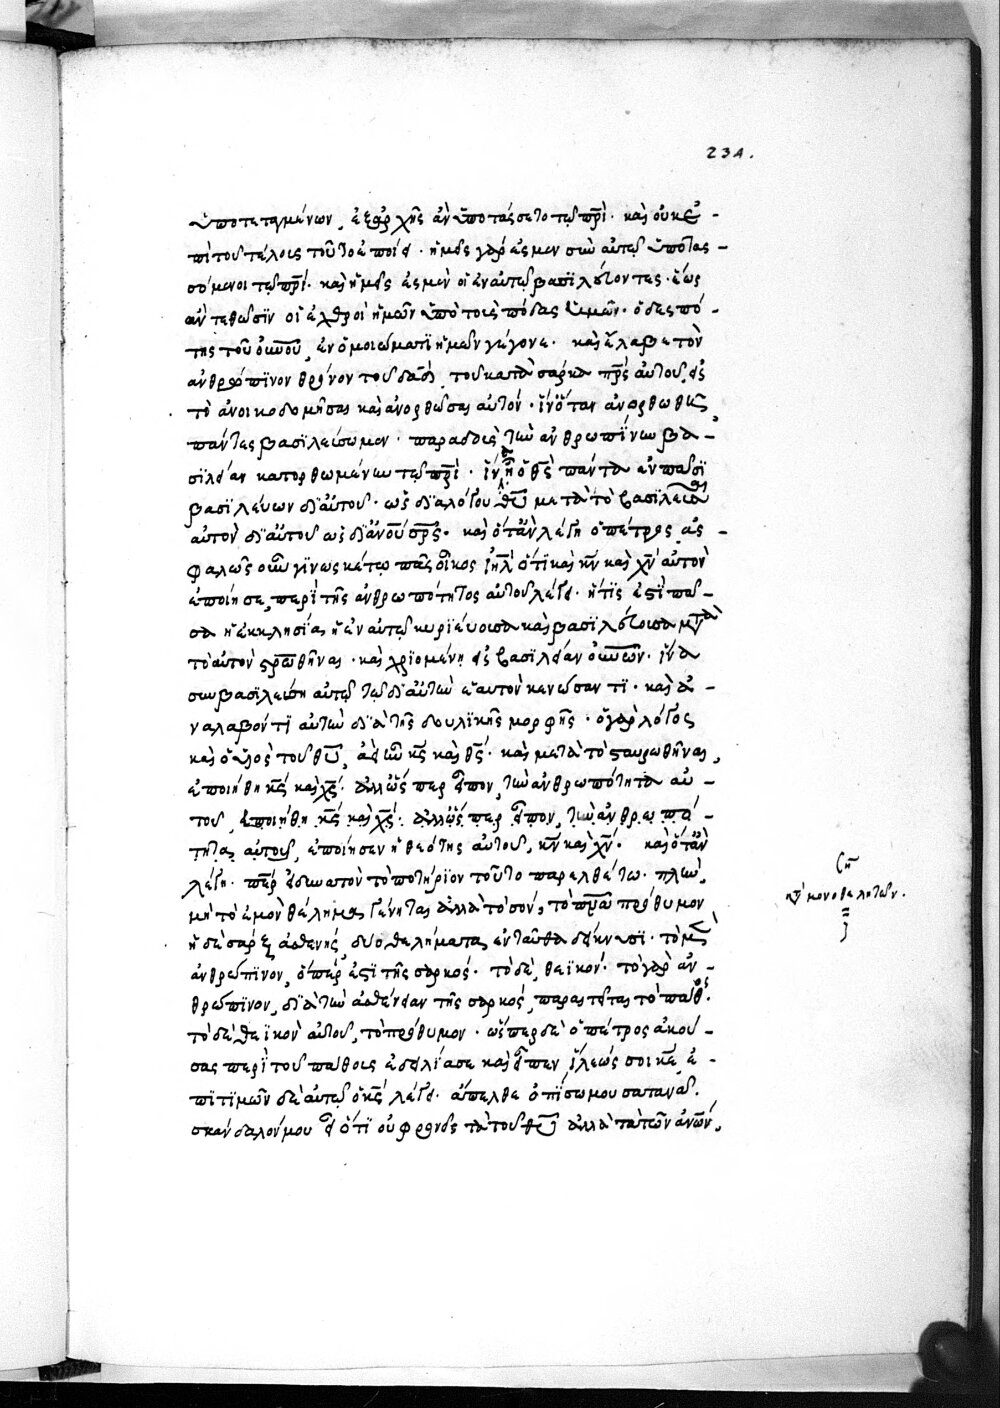 234.
ὑποτεταγμένων, ἐξαρχῆς ἂν ὑποτάσσετο τῷ πρὶ· καὶ οὐκ ἐ-
πὶ τοῦ τέλους τοῦτο ἐποίει· ἡμεῖς γάρ ἐσμεν οἱ ἐν αὐτῷ ὑποτας-
σόμενοι τῷ πρί· καὶ ἡμεῖς ἐσμὲν οἱ ἐν αὐτῷ βασιλεύοντες· ἕως
ἂν τεθῶσιν οἱ ἐχθροὶ ἡμῶν ὑπὸ τοὺς πόδας ἡμῶν· ὁ δεσπό-
της τοῦ οὐνοῦ, ἐν ὁμοιώματι ἡμῶν γέγονε· καὶ ἔλαβε τὸν
ἀνθρώπινον θρόνον τοῦ δαδ, τοῦ κατὰ σάρκα πρς αὐτοῦ, εἰς
τὸ ἀνοικοδομῆσαι καὶ ἀνορθῶσαι αὐτόν· ἵν' ὅταν ἀνορθωθῇ,
πάντες βασιλεύσωμεν· παραδοῖ τὴν ἀνθρωπίνην βα-
σιλείαν κατορθωμένην τῷ πρὶ· ἵν' ᾖ ὁ θς πάντα ἐν πᾶσι
βασιλεύων δι' αὐτοῦ· ὡς διὰ λόγου θυ μετὰ τὸ βασιλεῦσαι
αὐτὸν δι' αὐτοῦ ὡς δι' ἀνοῦ σρς· καὶ ὅταν λέγῃ ὁ πέτρος ἀς-
φαλῶς οὖν γινωσκέτω πᾶς οἶκος ιηλ ὅτι καὶ κν καὶ χν αὐτὸν
ἐποίησε, περὶ τῆς ἀνθρωπότητος αὐτοῦ λέγει· ἥτις ἐστὶ πᾶ-
σα ἡ ἐκκλησία, ἡ ἐν αὐτῷ κυριεύουσα καὶ βασιλεύουσα μετὰ
τὸ αὐτὸν στρωθῆναι· καὶ χριομένη εἰς βασιλείαν οὐνῶν· ἵνα
συμβασιλεύσῃ αὐτῷ τῷ δι' αὐτὴν ἑαυτὸν κενώσαντι· καὶ ἀ-
ναλαβόντι αὐτὴν διὰ τῆς δουλικῆς μορφῆς· ὁ γὰρ λόγος
καὶ ὁ υἱὸς τοῦ θυ, ἀεὶ ἦν κς καὶ θς· καὶ μετὰ τὸ σταυρωθῆναι,
ἐποιήθη κς καὶ χς· ἀλλ' ὥς περ εἶπον, τὴν ἀνθρωπότητα αὐ-
τοῦ, ἐποιήθη κς καὶ χς· ἀλλ' ὥς περ εἶπον, τὴν ἀνθρωπό-
τητα αὐτοῦ, ἐποίησεν ἡ θεότης αὐτοῦ, κν καὶ χν· καὶ ὅταν
λέγῃ· περ εἰ δυνατὸν τὸ ποτήριον τοῦτο παρελθέτω· πλὴν,
μὴ τὸ ἐμὸν θέλημα γένηται ἀλλὰ τὸ σόν, τὸ πνα πρόθυμον
ἡ δὲ σὰρξ ἀσθενής, δύο θελήματα ἐνταῦθα δείκνυσι· τὸ μὲν
ἀνθρώπινον, ὅπερ ἐστὶ τῆς σαρκός· τὸ δὲ, θεϊκόν· τὸ γὰρ ἀν-
θρώπινον, διὰ τὴν ἀσθένειαν τῆς σαρκός, παραιτεῖται τὸ πάθος·
τὸ δὲ θεϊκὸν αὐτοῦ, τὸ πρόθυμον· ὥσπερ δὲ ὁ πέτρος ἀκού-
σας περὶ τοῦ πάθους ἐδειλίασε καὶ εἶπεν, ἵλεώς σοι κε, ἐ-
πιτιμῶν δὲ αὐτῷ ὁ κς λέγει· ἄπελθε ὀπίσω μου σατανᾶ·
σκάνδαλόν μου εἶ ὅτι οὐ φρονεῖς τὰ τοῦ θυ ἀλλὰ τὰ τῶν ἀνῶν,
ση
κτ' μονοθελητῶν.